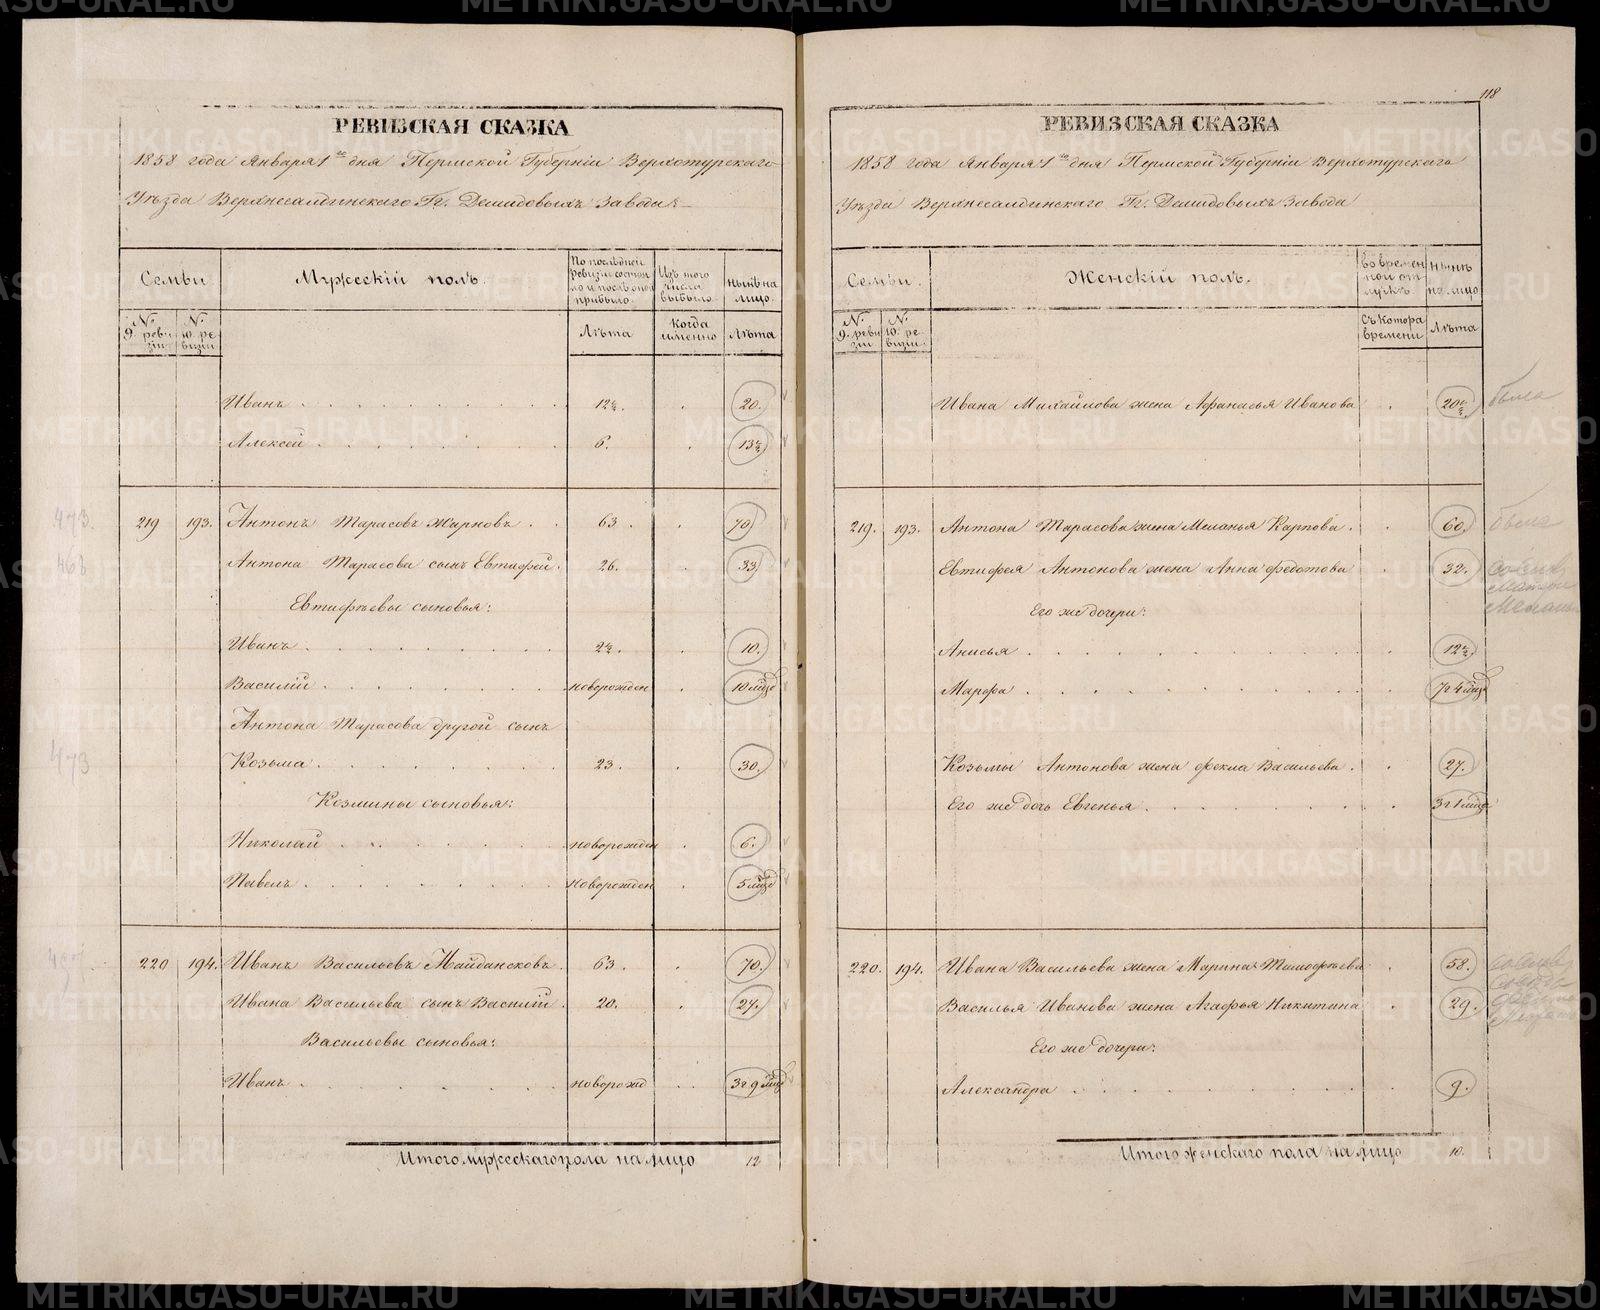 РЕВИЗСКАЯ СКАЗКА
1858 года Января 1го дня Пермской Губерніи Верхотурскаго
Уѣзда Верхнесалдинскаго Гг. Демидовыхъ Завода:
Семьи
Мужескій полъ.
По последней ревизіи состояло и послѣ оной прибыло.
Изъ того числа выбыло
Нынѣ на лицо.
№ 9. ревизіи
№ 10. ревизіи
Лѣта
Когда именно
Лѣта
Иванъ 12½. 20.
Алексей 6. 13½
219 193. Антонъ Тарасовъ Жарновъ 63. 70
Антона Тарасова сынъ Евтифей. 26. 33
Евтифѣевы сыновья:
Иванъ 2½. 10.
Василій новорожден 10 мѣд
Антона Тарасова другой сынъ
Козьма 23. 30.
Козмины сыновья:
Николай новорожден 6.
Павелъ новорожден 5 мѣд
220 194. Иванъ Васильевъ Майдансковъ. 63. 70.
Ивана Васильева сынъ Василій. 20. 27.
Васильевы сыновья:
Иванъ новорожд 3г 9 мѣд
Итого мужескаго пола на лицо 12
118
РЕВИЗСКАЯ СКАЗКА
1858 года Января 1го дня Пермской Губерніи Верхотурскаго
Уѣзда Верхнесалдинскаго Гг. Демидовыхъ Завода
Семьи.
Женскій полъ.
Во временной отлучкѣ
Нынѣ на лицо
№ 9. ревизіи
№ 10. ревизіи.
Съ котора времени
Лѣта
Ивана Михайлова жена Афанасья Иванова 20½
219. 193. Антона Тарасова жена Меланья Карпова. 60.
Евтифея Антонова жена Анна Федотова 32.
Его же дочери:
Анисья 12½
Марфа 7г 4 мѣд
Козьмы Антонова жена Фекла Васильева. 27.
Его же дочь Евгенья 3г 1 мѣд
220. 194. Ивана Васильева жена Марина Тимофѣева 58.
Василья Иванова жена Агафья Никитина 29.
Его же дочери:
Александра 9.
Итого женскаго пола на лицо 10.
METRIKI.GASO-URAL.RU